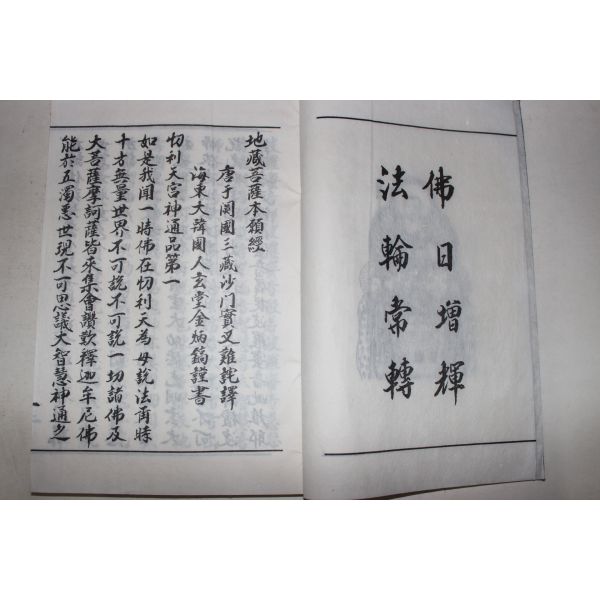 佛日增輝
法輪常轉
地藏菩薩本願經
唐于闐國三藏沙门實叉難陀譯
海東大韓國人玄堂金炳鎬謹書
忉利天宮神通品第一
如是我聞一時佛在忉利天為母說法爾時
十方無量世界不可說不可說一切諸佛及
大菩薩摩訶薩皆來集會讚歎釋迦牟尼佛
能於五濁惡世現不可思議大智慧神通之
一